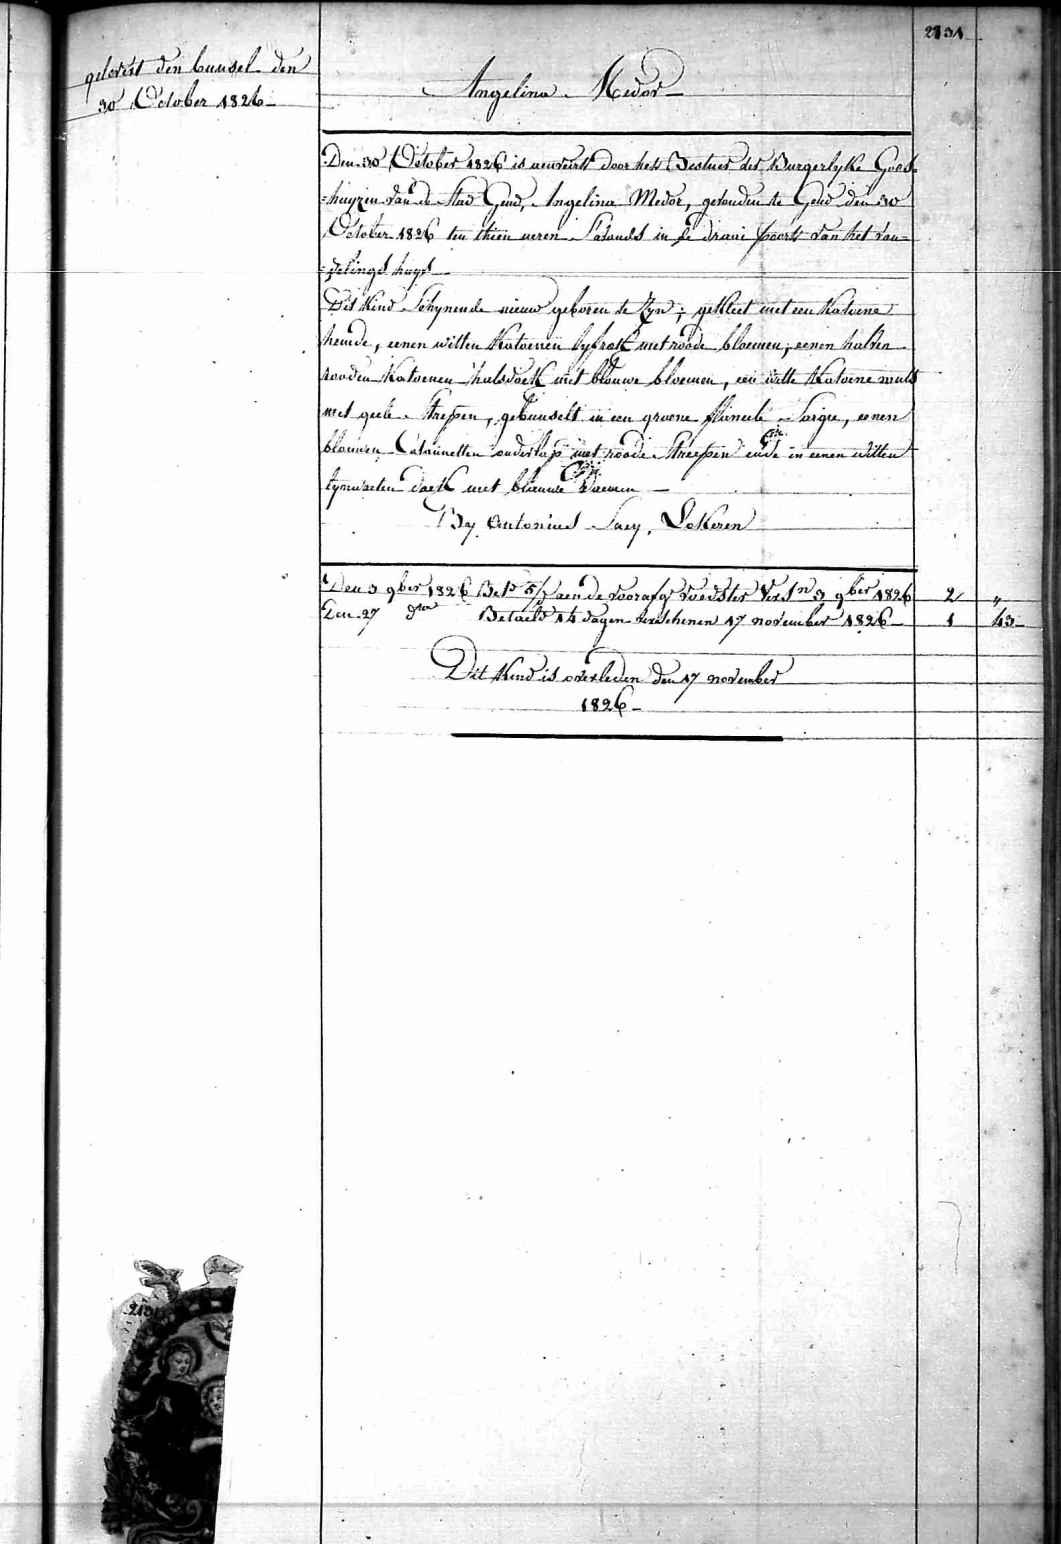 2131
gelevert den bunsel den
30 October 1826
Angelina Medor
Den 30 October 1826 is aenveirt door het Bestuer der Burgerlyke Gods=
=huyzen van de Stad Gend, Angelina Medor, gevonden te Gend den 30
October 1826 ten thien ueren S'avonds in de draai poorte van het von=
=delings huys
Dit Kind Schynende nieuw geboren te Zyn; gekleet met een Katoene
hemde, eenen witten Katoenen lyfrok met roode bloemen, eenen halven
rooden Katoenen halsdoek met blauwe bloemen, een witte Katoene muts
met geele Strepen, gebunselt in een groene flaneele Sargie, eenen
blauwen Catsunetten onderlap met roode Streepen ende in eenen witten
lynwaeten doek met blauwe
By Antonius Saey, Lokeren
Den 3 9ber 1826 Bet. aen de voorafg. voedster Vers. 3 9ber 1826 2 "
Den 27 dito Betaeld 14 dagen verschenen 17 november 1826 1 43
Dit Kind is overleden den 17 november
1826
2131